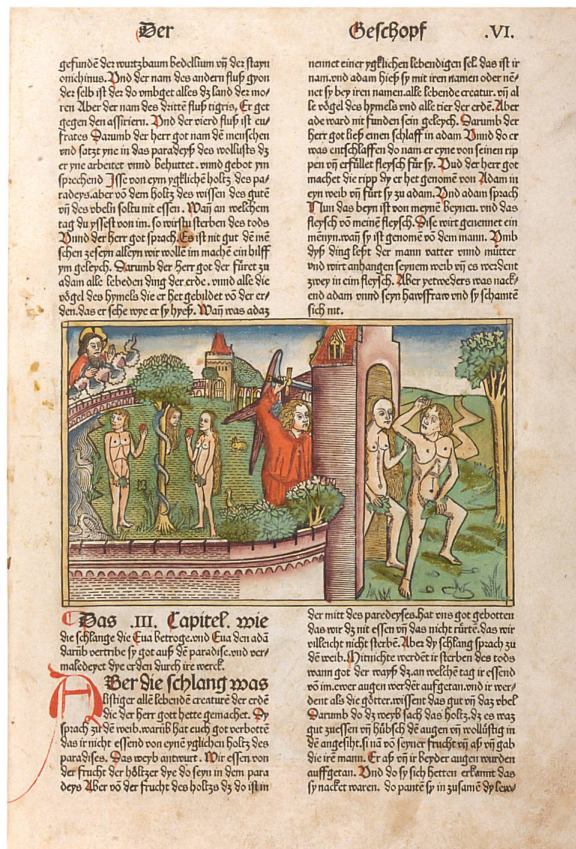 Der Geschopf .VI.
gefundē der wurtzbaum bedellium vñ der stayn
onichinus. Vnd der nam des andern fluß gyon
der selb ist der do vmbget alles dz land der mo-
ren Aber der nam des drittē fluß tigris, Er get
gegen den assiriern. Vnd der vierd fluß ist eu-
frates Darumb der herr got nam dē menschen
vnd satzt yne in das paradeyß des wollusts dz
er yne arbeitet vnnd behuttet. vnnd gebot ym
sprechend Isse von eym ygklichē holtz des pa-
radeys. aber võ dem holtz des wissen des gutē
vñ des vbeln soltu nit essen. Wañ an welchem
tag du yssest von im. so wirstu sterben des tods
Vnnd der herr got sprach. Es ist nit gut dē mē
schen zeseyn alleyn wir wollē im machē ein hilff
ym geleych. Darumb der herr got der füret zu
adam alle lebeden ding der erde. vnnd alle die
vögel des hymels die er het gebildet võ der er-
den. das er sehe wye er sy hyeß. Wañ was adaz
nennet einer ygklichen lebendigen sel. das ist ir
nam. vnd adam hieß sy mit iren namen oder nē-
net sy bey iren namen. alle lebende creatur. vñ al
le vögel des hymels vnd alle tier der erdē. Aber
ade ward nit funden sein geleych. Darumb der
herr got ließ einen schlaff in adam Vnnd do er
was entschlaffen do nam er eyne von seinen rip
pen vñ erfüllet fleysch für sy. Vnd der herr got
machet die ripp dy er het genomē von Adam in
eyn weib vñ fürt sy zu adam. Vnd adam sprach
Nun das beyn ist von meynē beynen. vnd das
fleysch võ meinē fleysch. Dise wirt genennet ein
mēnyn. wañ sy ist genomē võ dem mann. Vmb
dyß ding leßt der mann vatter vnnd mütter
vnd wirt anhangen seynem weib vñ es werdent
zwey in eim fleysch. Aber yetweders was nack-
end adam vnnd seyn hawsfraw vnd sy schamtē
sich nit.
Das .III. Capitel. wie
die schlange die Eua betroge. vnd Eua den adā
darüb vertribe sy got auß dē paradise. vnd ver-
maledeyet dye erden durch ire werck.
Aber die schlang was
listiger allē lebendē creaturē der erdē
die der herr gott hette gemachet. Dy
sprach zu dē weib. warüb hat euch got verbottē
das ir nicht essend von eynē yglichen holtz des
paradises. Das weyb antwurt. Wir essen von
der frucht der höltzer dye do seyn in dem para
deys Aber võ der frucht des holtzs dz do ist in
der mitt des paredeyses. hat vns got gebotten
das wir dz nit essen vñ das nicht rürtē. das wir
villeicht nicht sterbē. Aber dy schlang sprach zu
dē weib. Mitnichte werdēt ir sterben des tods
wann got der wayß dz. an welchē tag ir essend
võ im. ewer augen werdēt aufgetan. vnd ir wer-
dent als die götter. wissent das gut vñ daz vbel
Darumb do dz weyb sach das holtz. dz es waz
gut zuessen vñ hübsch dē augen vñ wollüstig in
dē angesiht. si nā võ seyner frucht vñ aß vñ gab
die irē mann. Er aß vñ ir beyder augen wurden
auffgetan. Vnd do sy sich hetten erkannt das
sy nacket waren. do pantē sy in zusamē dy lew-